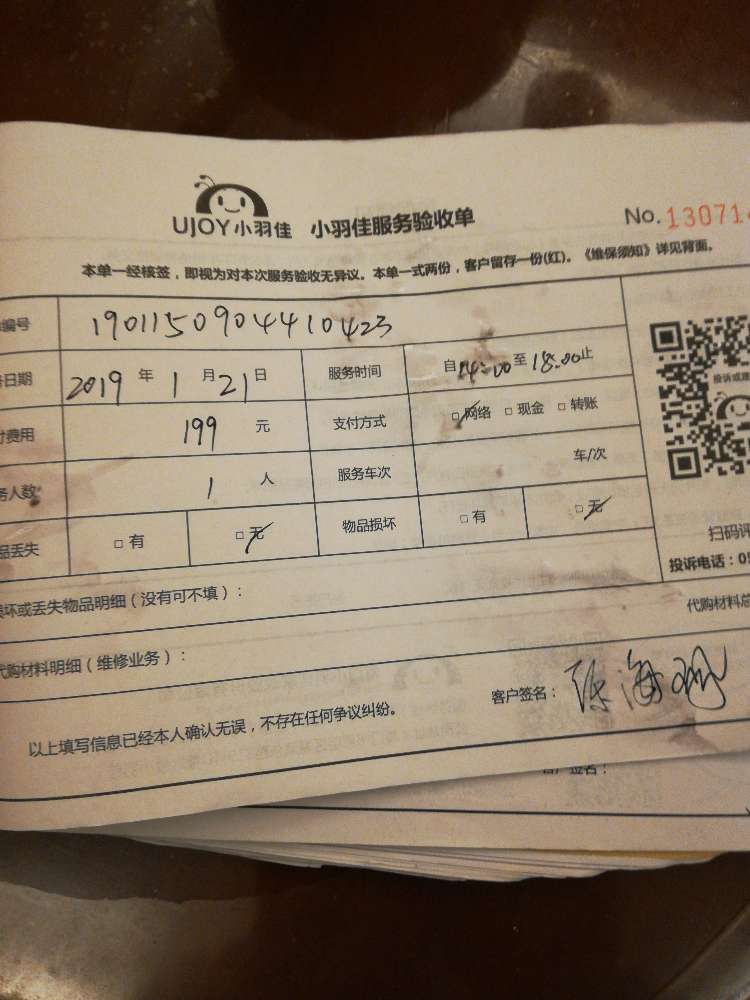 UJOY小羽佳 小羽佳服务验收单 No.13071
本单一经核签，即视为对本次服务验收无异议。本单一式两份，客户留存一份(红)。《维保须知》详见背面。
编号 1901150904410423
日期 2019 年 1 月 21 日 服务时间 自14:00至18:00止
费用 199 元 支付方式 □网络 □现金 □转账
务人数 1 人 服务车次 车/次
品丢失 □有 □无 物品损坏 □有 □无
投诉或
扫码评
投诉电话：05
坏或丢失物品明细（没有可不填）：
代购材料总
代购材料明细（维修业务）：
客户签名：
以上填写信息已经本人确认无误，不存在任何争议纠纷。